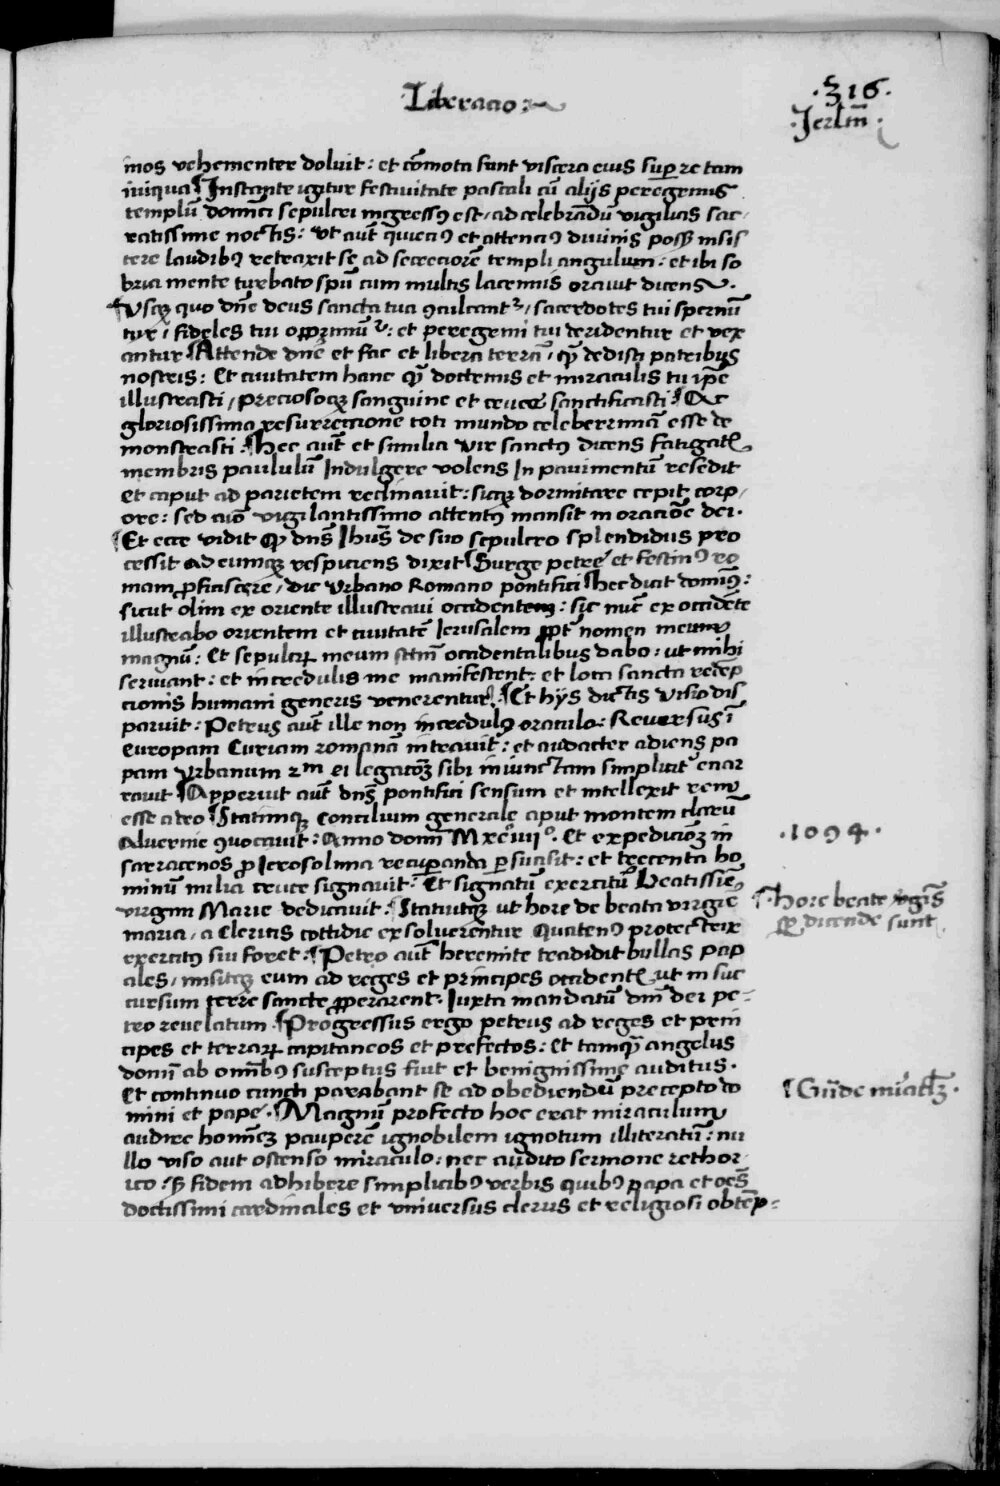 ·Liberacio:~
·316·
·Jerlm̄·
imos vehementer doluit: et cōmota sunt viscera eius sup̄ re tam
iniqua ¶Instante igitur festiuitate pascali cū alijs peregrinis
templū domīci sepulcri ingressꝰ est, ad celebrādū vigilias sac,
ratissime noctis: vt aut̄ q̄uieciꝰ et attenciꝰ diuinis posset insis
tere laudibꝰ retraxit se ad secreciorē templi angulum: et ibi so
bria mente turbato spū cum multis lacrimis orauit dicens.
¶Vsqꝫ quo dn̄e deus sancta tua ꝯculcant᷑, sacerdotes tui spernū
tur, fideles tui opprimūt᷑: et peregrini tui deridentur et vex
antur ¶Attende dn̄e et fac et libera terrā, qᷓ dedisti patribus
nostris: Et ciuitatem hanc qᷓ doctrinis et miraculis tu ip̄e
illustrasti, preciosoqꝫ sanguine et cruce sanctificasti ¶Ac
gloriosissima resurrectione toti mundo celeberrimā esse de
monstrasti ¶Hec aut̄ et similia vir sanctus dicens fatigatꝭ
membris paululū Indulgere volens In pauimentū resedit
et caput ad parietem reclinauit: sicqꝫ dormitare cepit corp,
ore: sed aīo vigilantissimo attentꝰ mansit in oraciōe dei.
¶Et ecce vidit qꝫ dn̄s Ihūs de suo sepulcro splendidus pro
cessit ad eumqꝫ respiciens dixit ¶Surge petre et festinꝰ ro
mam ꝓficiscere, dic Vrbano Romano pontifici ¶hec dicit dominꝰ:
sicut olim ex oriente illustraui occidentem: sic nūc ex occidēte
illustrabo orientem et ciuitatē Ierusalem ꝓpt̄ nomen meum
magnū: Et sepulcrꝫ meum occidentalibus dabo: ut mihi
seruiant: et incredulis me manifestent: et loca sancta redēp
cionis humani generis venerentur. ¶Et hijs dictis visio dis
paruit: Petrus aut̄ ille non incredulꝰ oraculo: Reuersus ī
Europam Curiam romanā intrauit: et audacter adiens pa
pam Vrbanum 2m ei legacōꝫ sibi iniunctam simplicit̄ enar
rauit ¶Apperuit aut̄ dn̄s pontifici sensum et intellexit rem
esse a deo ¶Statimqꝫ Concilium generale aput montem clarū
Aluernie ꝯuocauit: Anno domī Mxc̊iiij̊. Et expedicōꝫ in
sarracenos ꝓ Ierosolima recuperanda ꝑsuasit: et trecenta ho
minū milia cruce signauit: Et signatū exercitū Beatissīe
virgini Marie dedicauit: ¶Statuitqꝫ ut hore de beata virgīe
maria, a clericis cottidie exsoluerentur Quatenꝰ protectrix
exercitꝰ sui foret: ¶Petro aut̄ heremite tradidit bullas pap
ales, misitqꝫ eum ad reges et principes occidentꝭ ut in suc
cursum terre sancte ꝓperarent. Juxta mandatū dn̄i dei pe-
tro reuelatum ¶Progressus ergo petrus ad reges et prin
cipes et terrarꝫ capitaneos et prefectos: Et tamqᷓ angelus
domī ab omībꝰ susceptus fuit et benignissime auditus.
Et continuo cuncti parabant se ad obediendū precepto do
mini et pape. ¶Magnū profecto hoc erat miraculum
audire homēꝫ pauperē ignobilem ignotum illiteratū: nu
llo viso aut ostenso miraculo: nec audito sermone rethor
ico: ꝫ fidem adhibere simplicibꝰ verbis quibꝰ papa et oēs
doctissimi cardinales et vniuersus clerus et religiosi obtēp-
·1094·
¶Hore beate v̄gīs
qꝫ dicende sunt
¶Grāde mir̄aclꝫ.